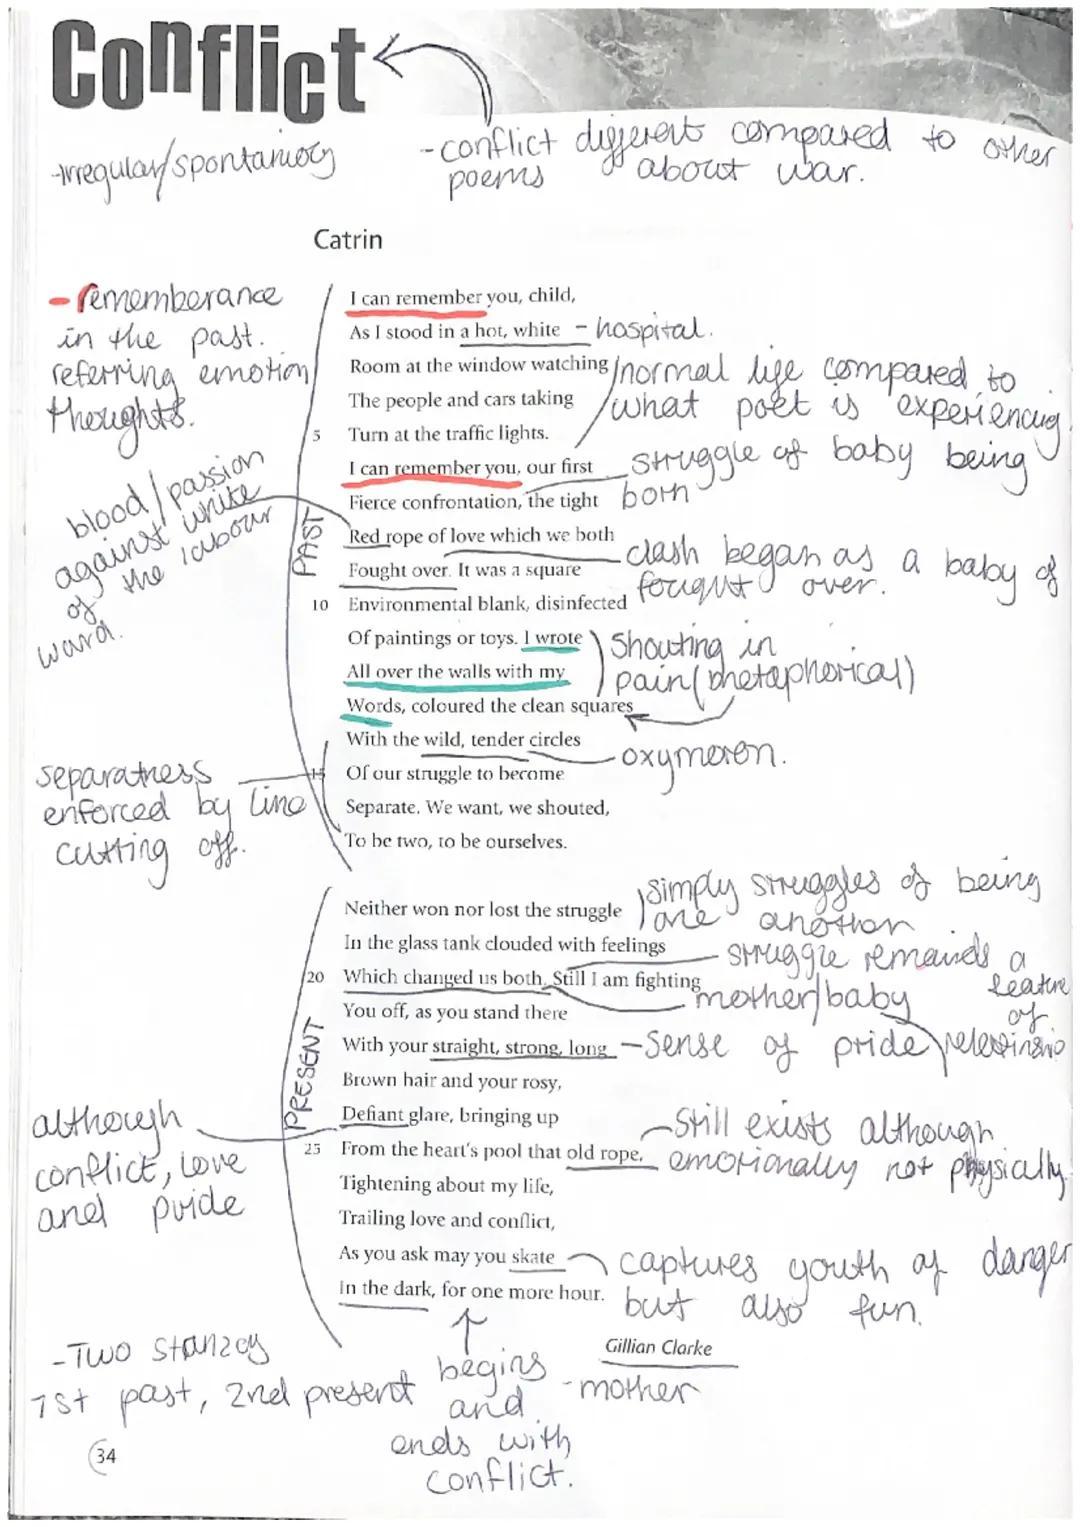 Conflict
-irregular/spontaniosy
-conflict different compared to other
poems about war.
Catrin
- rememberance
in the past.
referring emotion
thoughts.
I can remember you, child,
As I stood in a hot, white - hospital.
Room at the window watching
The people and cars taking
5 Turn at the traffic lights.
normal life compared to
what poet is experiencing
I can remember you, our first
Fierce confrontation, the tight
struggle of baby being
born
Red rope of love which we both
Fought over. It was a square
clash began as a baby of
fought over.
10 Environmental blank, disinfected
Of paintings or toys. I wrote
All over the walls with my
Words, coloured the clean squares
Shouting in
pain (metaphorical)
blood/passion
against white
of the labour
ward.
PAST
With the wild, tender circles - oxymoron.
15 Of our struggle to become
Separate. We want, we shouted,
To be two, to be ourselves.
separatness
enforced by line
cutting off.
Neither won nor lost the struggle
simply struggles of being
one another
In the glass tank clouded with feelings
20 Which changed us both. Still I am fighting
struggle remains a
feature
of
relationship
mother/baby
You off, as you stand there
With your straight, strong, long - Sense of pride
Brown hair and your rosy,
Defiant glare, bringing up
25 From the heart's pool that old rope,
Still exists although
emotionally not physically
PRESENT
although
conflict, love
and pride
Tightening about my life,
Trailing love and conflict,
As you ask may you skate
In the dark, for one more hour.
captures youth of danger
but also fun.
Gillian Clarke
-mother
-Two stanzas
1st past, 2nd present
begins
and
ends with
conflict.
34